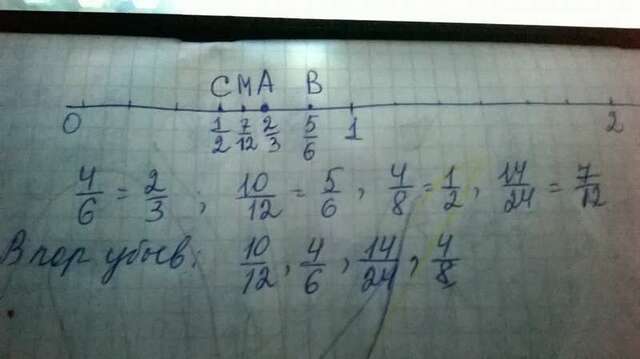 С М А В
0 1/2 7/12 2/3 5/6 1 2
4/6 = 2/3 ; 10/12 = 5/6 , 4/8 = 1/2 , 14/24 = 7/12
В пор убыв: 10/12 , 4/6 , 14/24 , 4/8